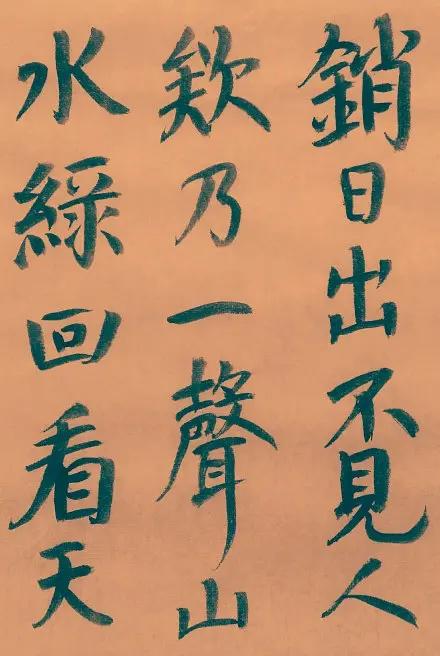 銷日出不見人
欸乃一聲山
水綠回看天